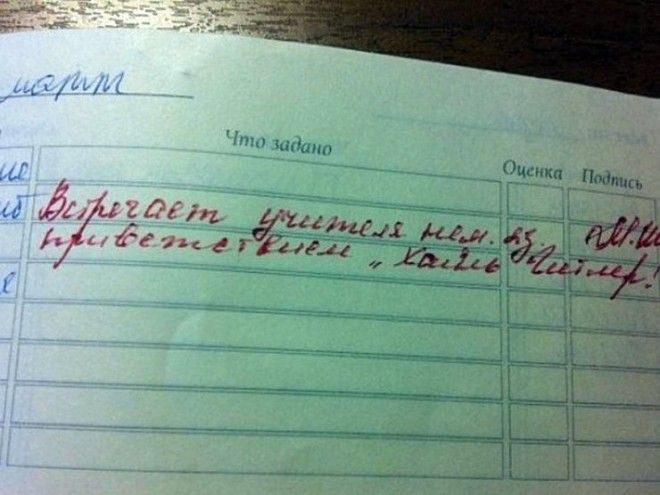 март
Что задано
Оценка
Подпись
Встречает учителя нем. яз.
приветствием „Хайль Гитлер!